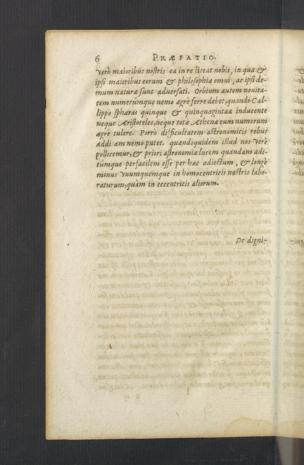 6 PRÆFATIO.
verò maioribus nostris ea in re liceat nobis, in qua &
ipsi maioribus eorum & philosophis omni, ac ipsi de-
mum natura sunt aduersati. Orbium autem nouita-
tem numerúmque nemo ægrè ferre debet, quando Cal-
lippo sphæris quinque & quinquaginta inducente
neque Aristoteles, neque tota Athena eum numerum
ægrè tulere. Porrò difficultatem astronomicis rebus
addi am nemo putet. quandoquidem illud nos verè
pollicemur, & priori astronomiæ lucem quandam adi-
tumque perfacilem esse per hæc adiectum, & longè
minus vnumquemque in homocentricis nostris labo-
raturum, quàm in eccentricis aliorum.
De digni-